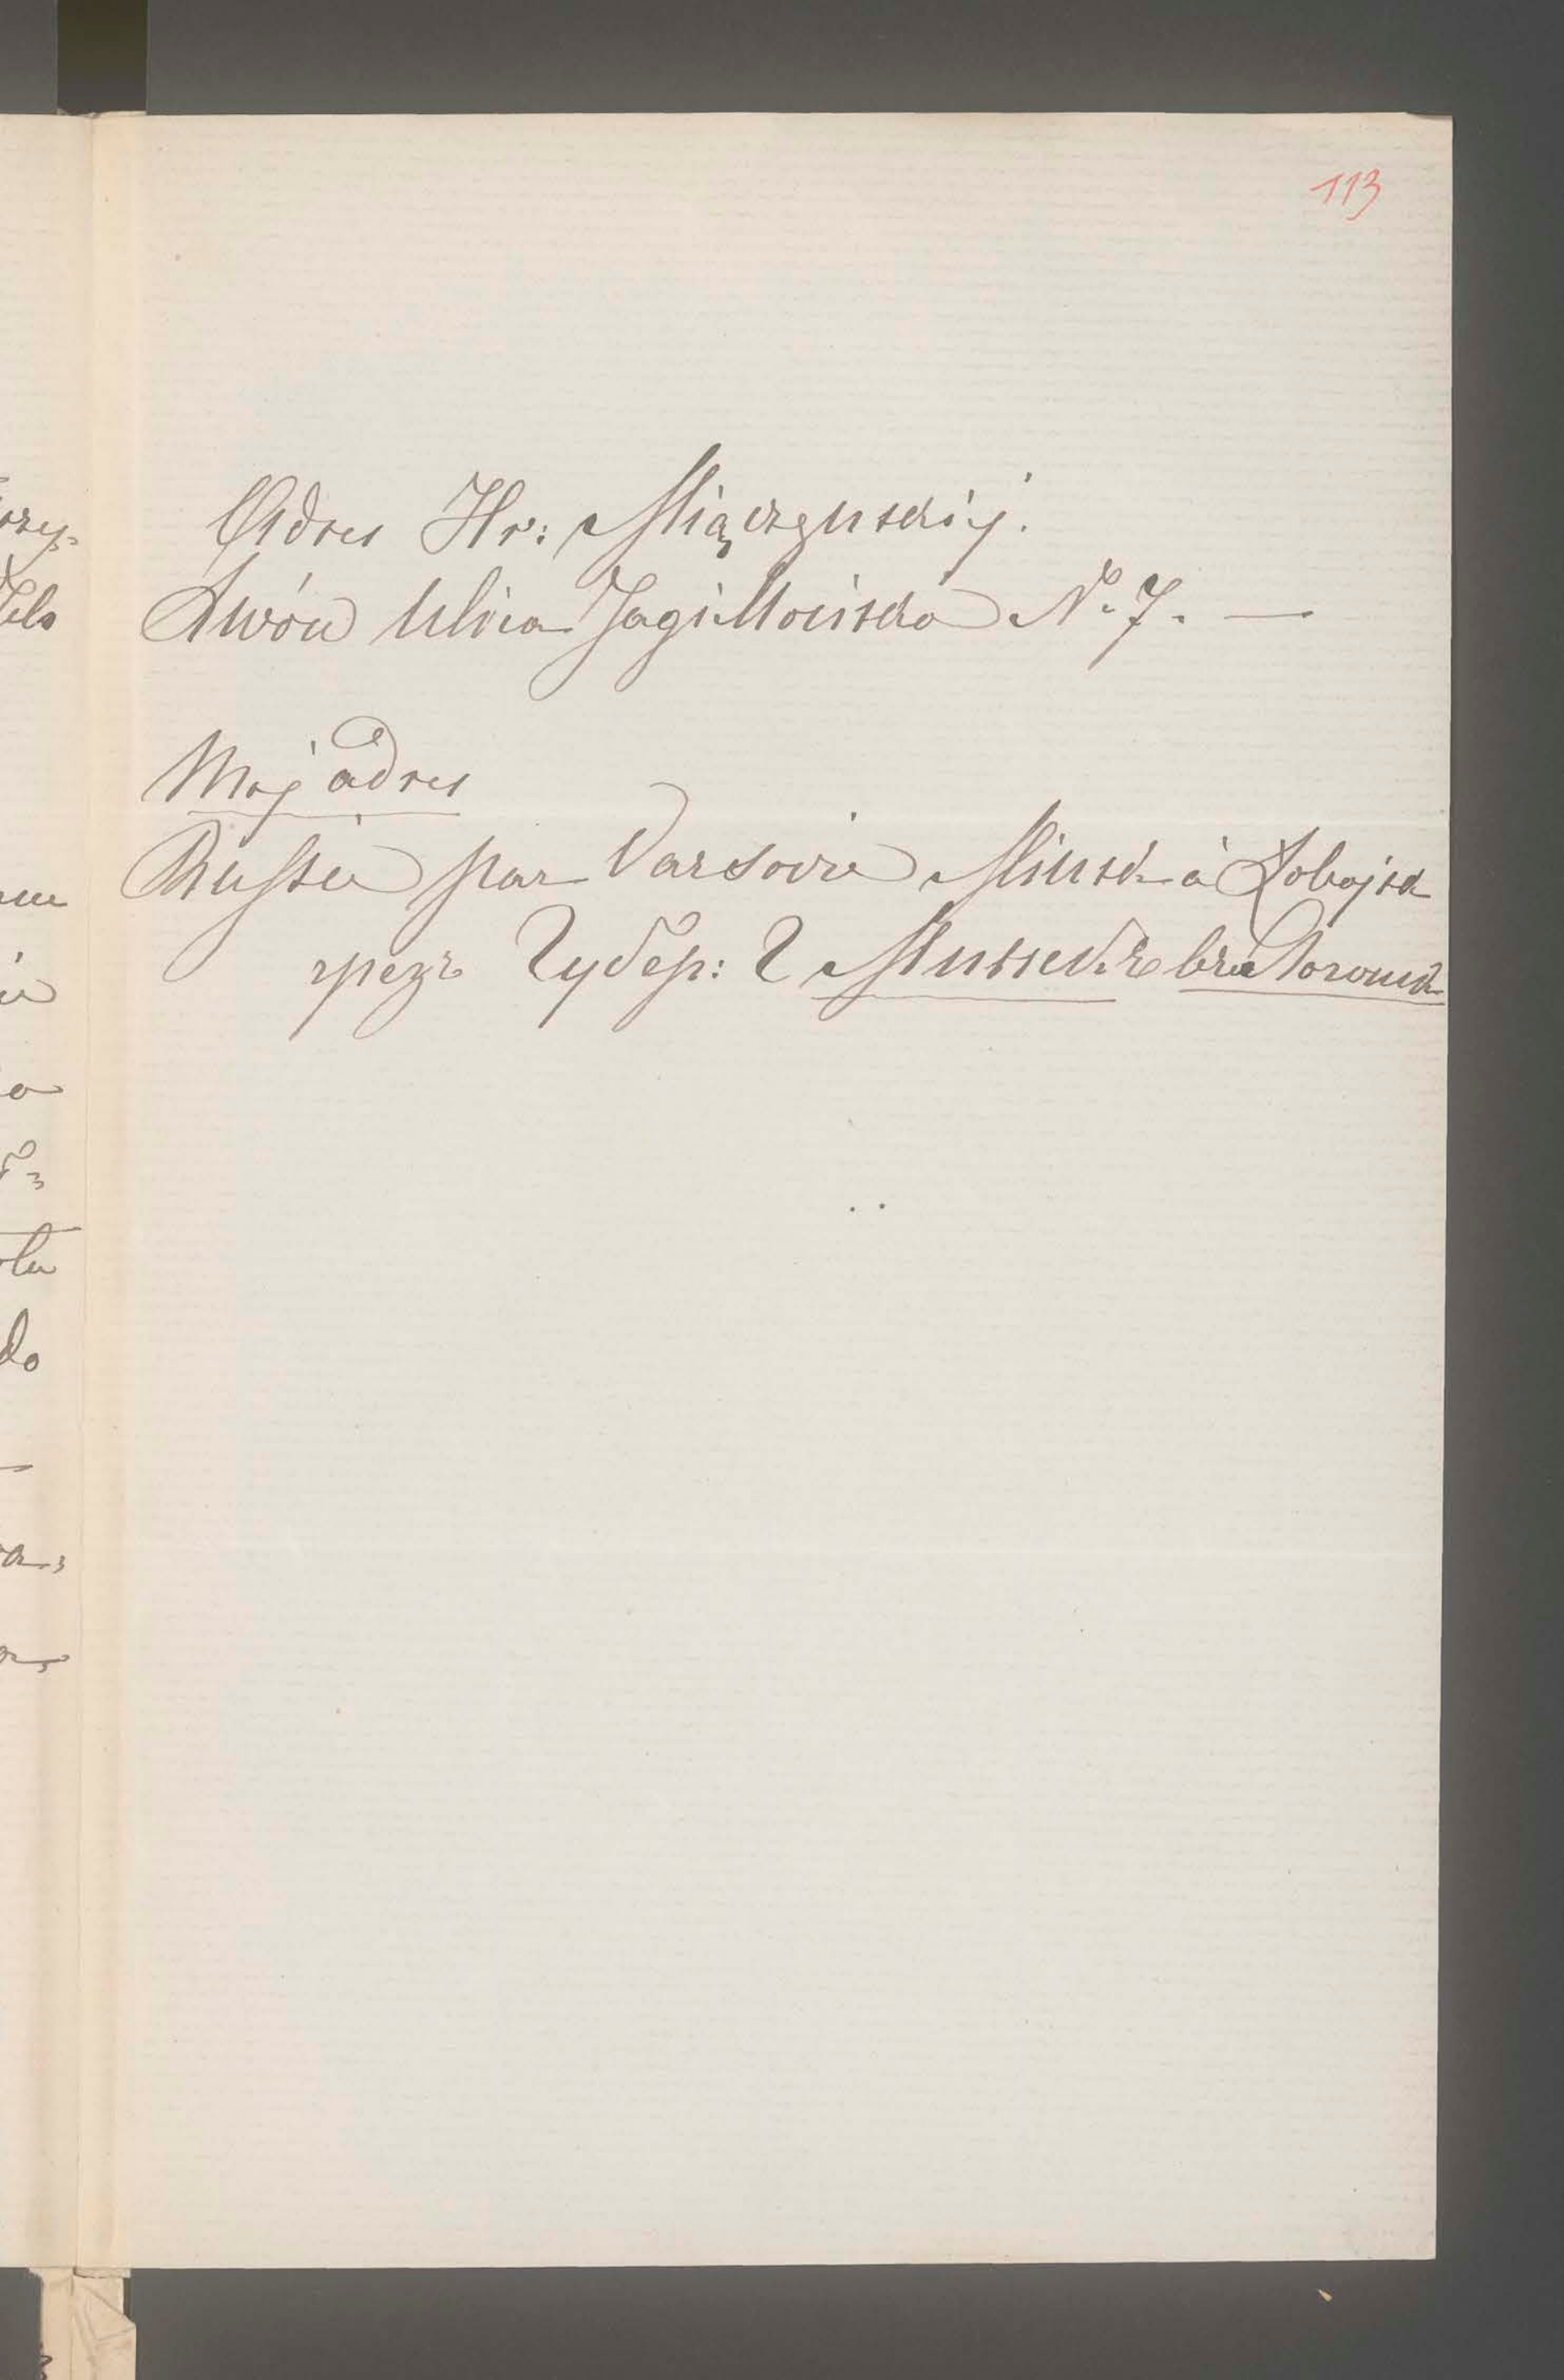 113
Adres Hr: Miączyńskiéj.
Lwów Ulica Jagiellońska No. 7. —
Mój adres
Russie par Varsovie Minsk à Łohojsk
чрезъ Губер: Г Минскъ въ